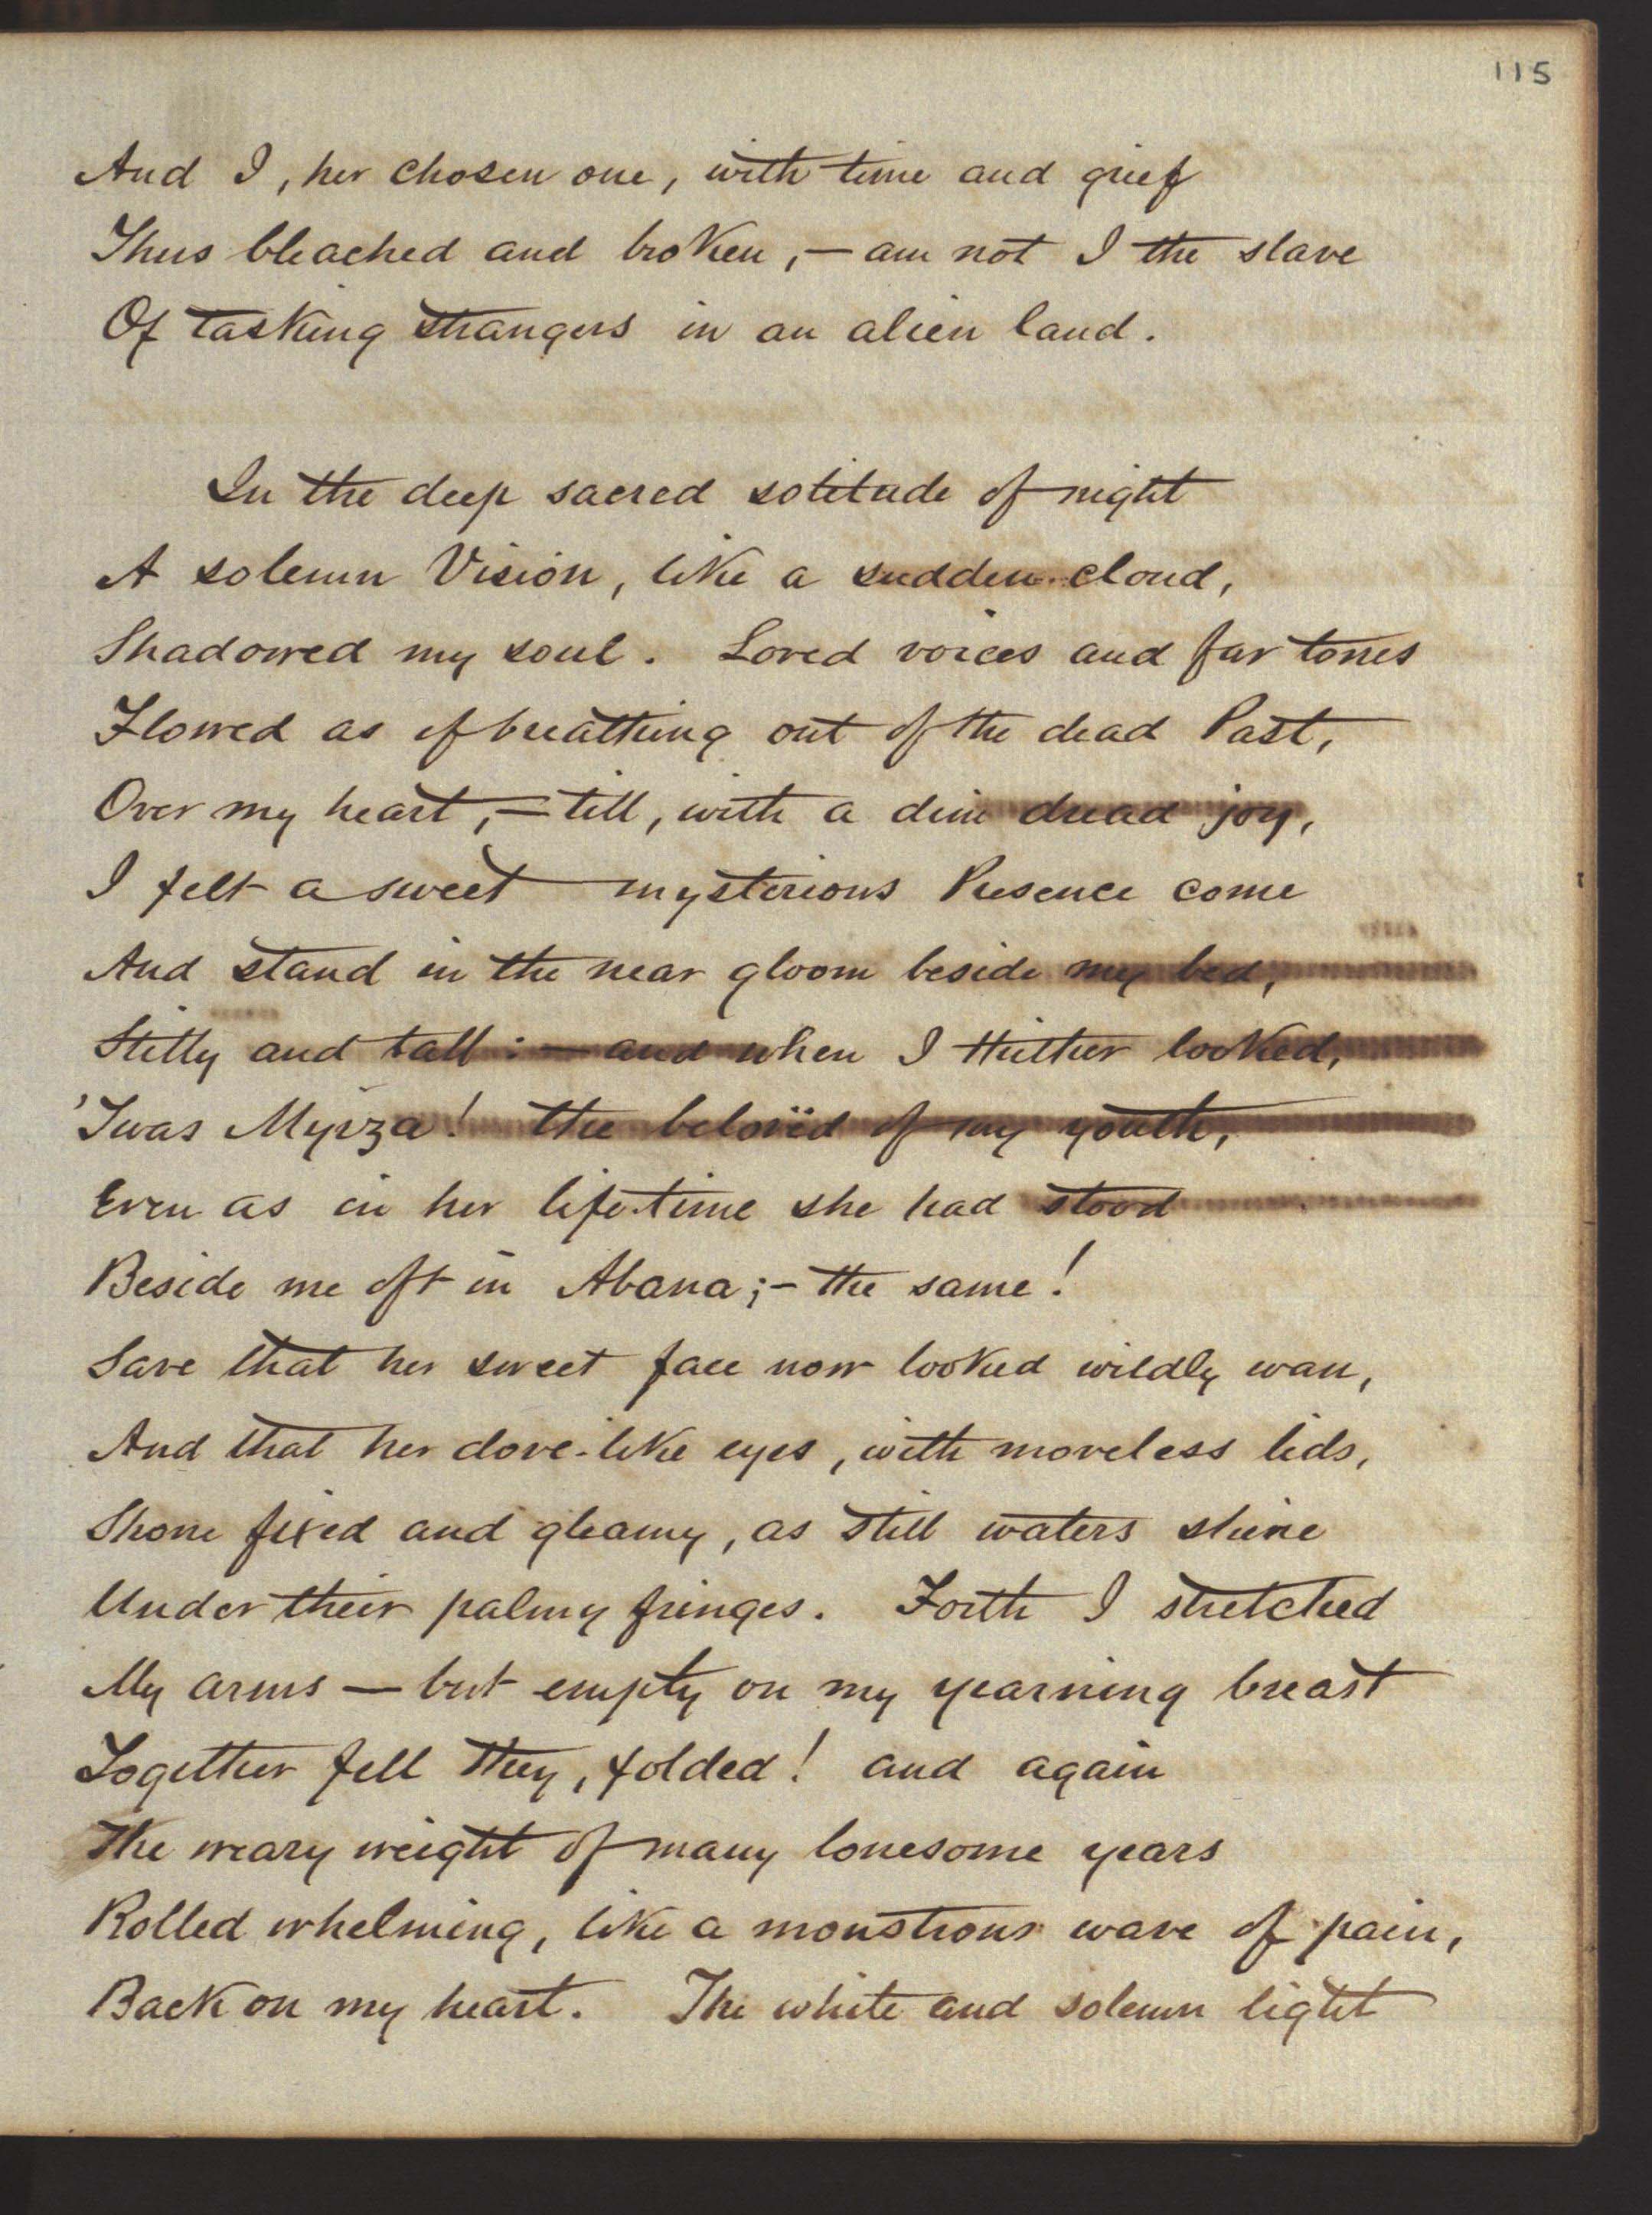 115
And I, her chosen one, with time and grief
Thus bleached and broken,—am not I the slave
Of tasking strangers in an alien land.
In the deep sacred solitude of night
A solemn Vision, like a sudden cloud,
Shadowed my soul. Loved voices and far tones
Flowed as if breathing out of the dead Past,
Over my heart,—till, with a dim dread joy,
I felt a sweet mysterious Presence come
And stand in the near gloom beside my bed,
Stilly and tall:—and when I thither looked,
'Twas Myrza! the belovëd of my youth,
Even as in her life-time she had stood
Beside me oft in Abana;—the same!
Save that her sweet face now looked wildly wan,
And that her dove-like eyes, with moveless lids,
Shone fixed and gleamy, as still waters shine
Under their palmy fringes. Forth I stretched
My arms—but empty on my yearning breast
Together fell they, folded! and again
The weary weight of many lonesome years
Rolled whelming, like a monstrous wave of pain,
Back on my heart. The white and solemn light